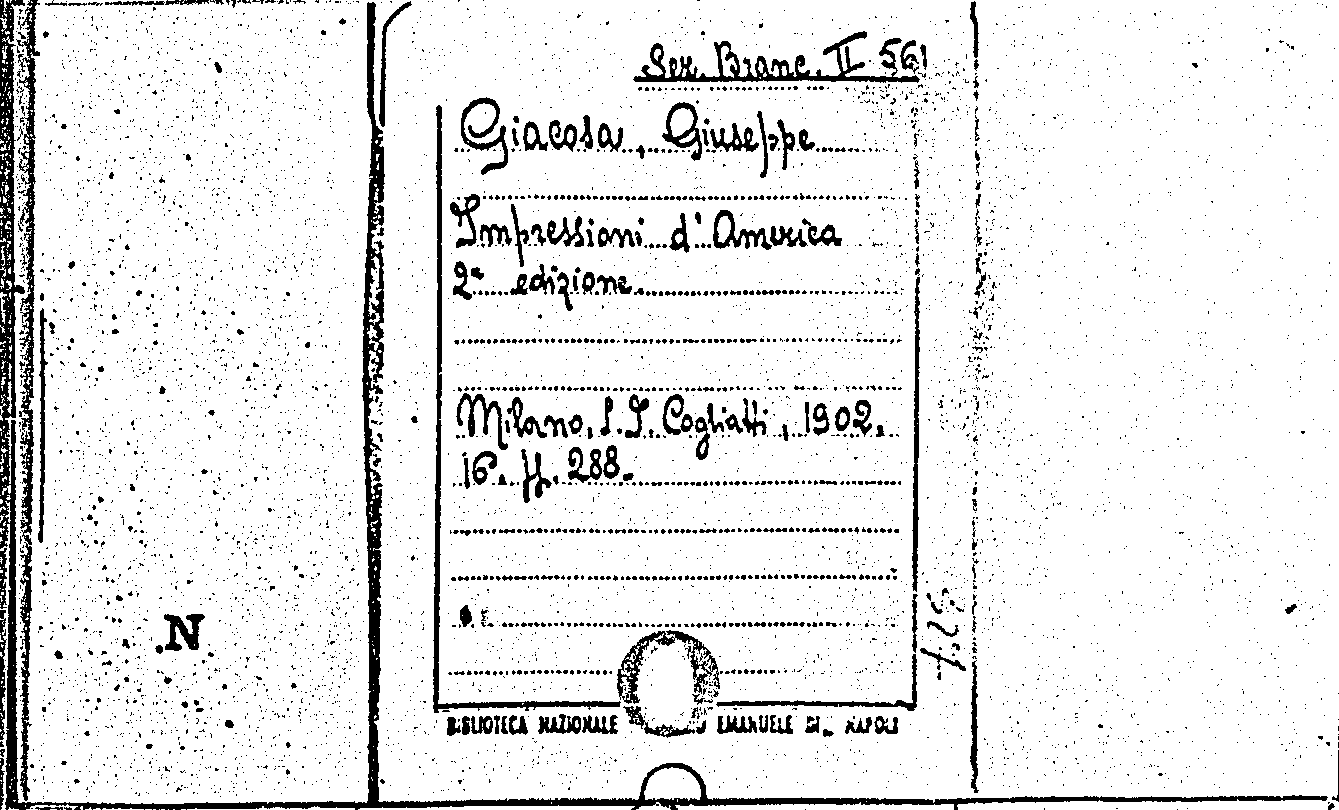 Sez. Branc. II 561
Giacosa, Giuseppe
Impressioni d'America
2ª edizione.
Milano, L. F. Cogliatti, 1902.
16. pp. 288.
.N
BIBLIOTECA NAZIONALE EMANUELE NAPOLI